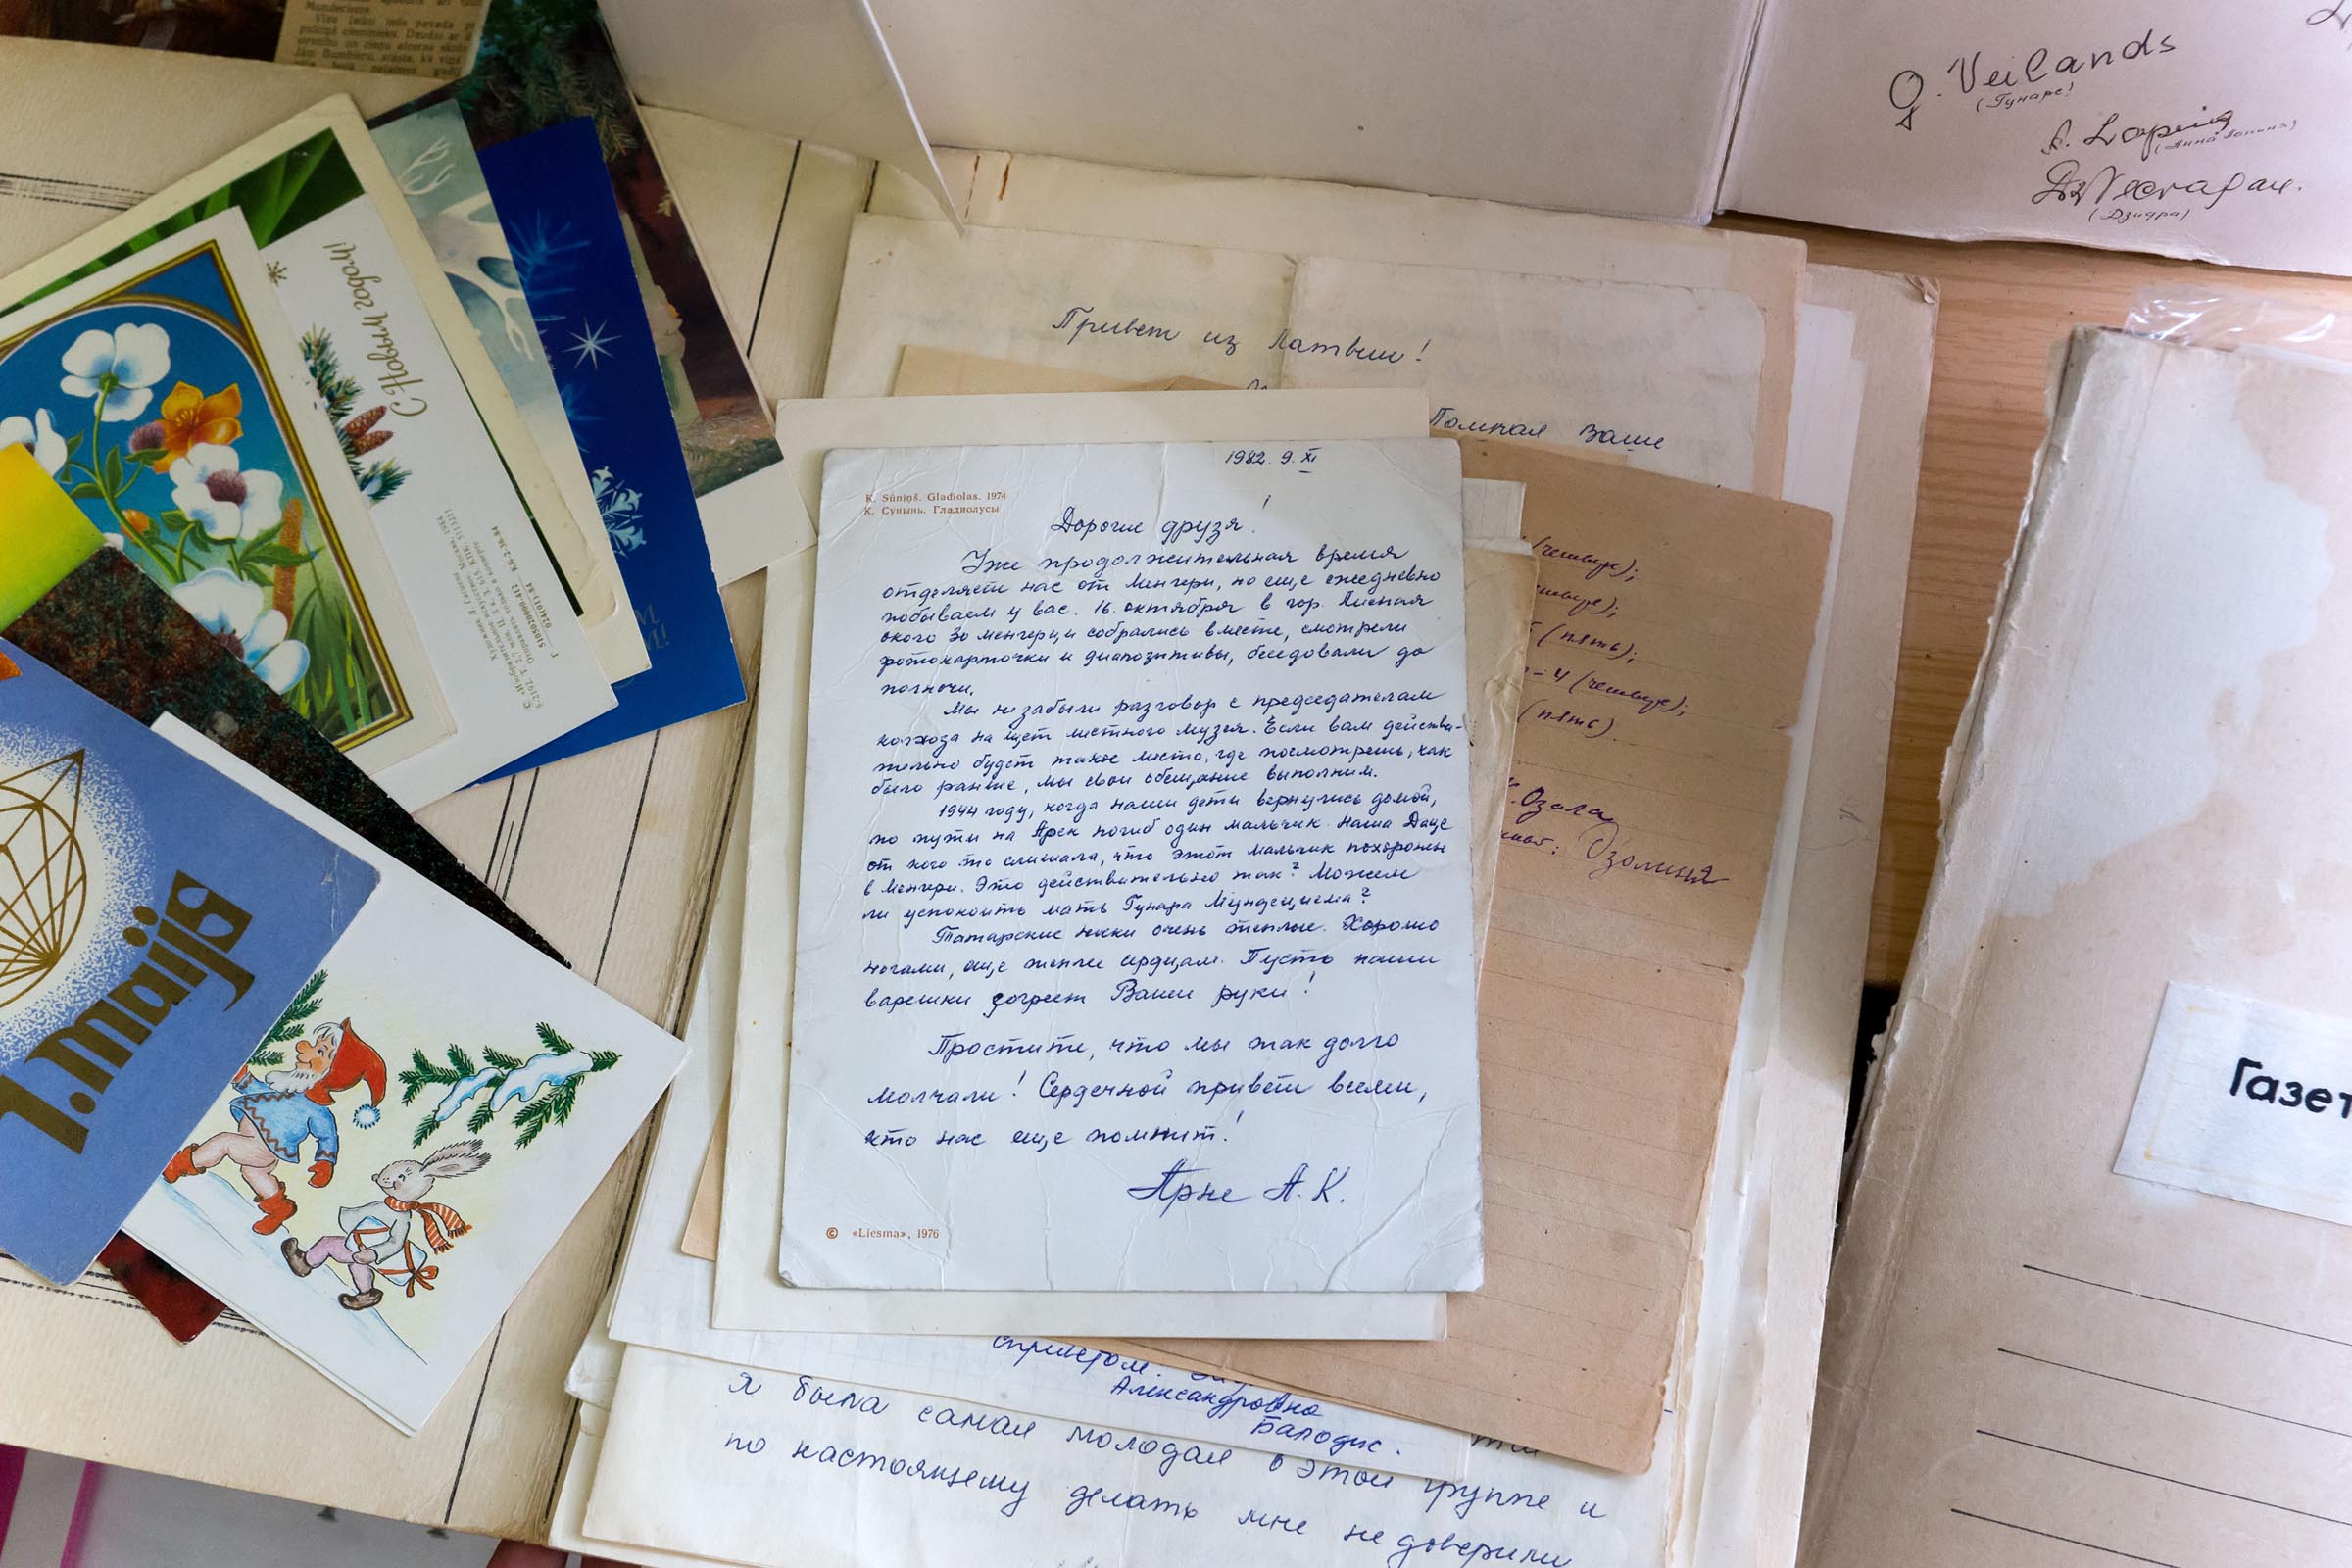 G. Veilands
(Гунарс)
A. Lapiņa
(Анна Лапиня)
(Дзидра)
Привет из Латвии!
Ваше
1982. 9. XI
K. Sūniņš. Gladiolas. 1974
К. Сунынь. Гладиолусы
Дорогие друзя!
Уже продолжительная время
отделяет нас от Менгери, но еще ежедневно
побываем у вас. 16. октября в гор. Лиепая
около 30 менгерци собрались вместе, смотрели
фотокарточки и диапозитивы, беседовали до
полночи.
Мы не забыли разговор с председателам
колхоза на щет местного музея. Если вам действи-
тельно будет такое место, где посмотреть, как
было раньше, мы свои обещание выполним.
1944 году, когда наши дети вернулись домой,
по пути на Арск погиб один мальчик. Наша Даце
от кого то слишала, что этот мальчик похороны
в Менгери. Это действительно так? Можем
ли успокоить мать Гунара Мундециема?
Татарские носки очень теплые. Хорошо
ногами, еще теплее сердцам. Пусть наши
варешки согреет Ваши руки!
Простите, что мы так долго
молчали! Сердечной привет всеми,
кто нас еще помнит!
Арне А. К.
© «Liesma», 1976
(четыре);
(пять);
– 4 (четыре);
(пять).
Озола
Озолиня
С Новым годом!
1. maijs
Газет
с приветом.
Александровна
Балодис.
Я была самая молодая в этой группе и
по настоящему делать мне не доверили